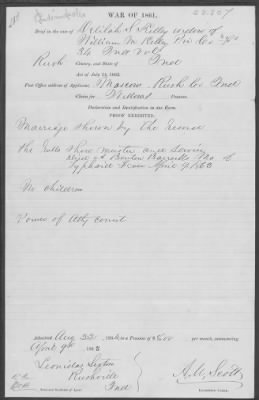 Indianapolis
22267
WAR OF 1861.
Brief in the case of Delilah S. Kelley widow of
William M. Kelley Pri Co "H"
Ind Vols
Rush County, and State of Ind
Act of July 14, 1862.
Post Office address of Applicant: Moscow Rush Co Ind
Claim for Widows Pension.
Declaration and Identification in due Form.
PROOF EXHIBITED.
Marriage shown by the
The Rolls show muster and service
died at Benton Barracks Mo of
Typhoid Fever April 9 1863
No children
Power of Atty
Admitted Aug 186 to a Pension of $8.00 per month, commencing
April 9th 1863
Leonidas Sexton
Rushville
Ind
A.W. Scott
Name and Residence of Agent.
Examining Clerk.